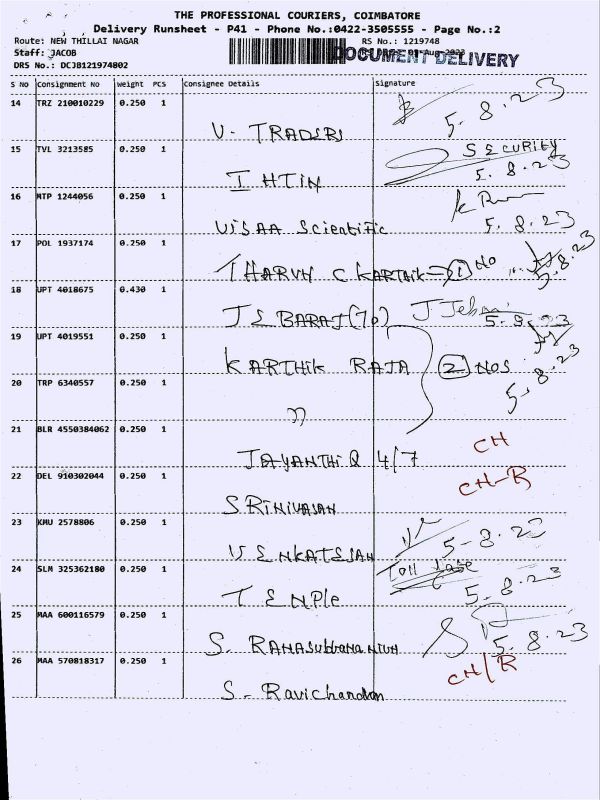 THE PROFESSIONAL COURIERS, COIMBATORE
Delivery Runsheet - P41 - Phone No.:0422-3505555 - Page No.:2
Route: NEW THILLAI NAGAR RS No.: 1219748
Staff: JACOB DOCUMENT DELIVERY
DRS No.: DCJB121974802
S No Consignment No Weight PCS Consignee Details Signature
14 TRZ 210010229 0.250 1
V. TRADERS 5.8.23
15 TVL 3213585 0.250 1 SECURITY
5.8.23
16 MTP 1244056 0.250 1
VISAA Scientific 5.8.23
17 POL 1937174 0.250 1
THARUN C KARTHIK 1 NO 5.8.23
18 UPT 4018675 0.430 1
JEBARAJ (70) 5.8.23
19 UPT 4019551 0.250 1
KARTHIK RAJA 2 NOS
20 TRP 6340557 0.250 1 5.8.23
21 BLR 4550384062 0.250 1 CH
JAYANTHI Q 4/7
22 DEL 910302044 0.250 1 CH-R
SRINIVASAN
23 KMU 2578806 0.250 1
VENKATESAN 5-8.23
24 SLM 325362180 0.250 1
TEMPLE 5.8.23
25 MAA 600116579 0.250 1
S. RAMASubbramanium 5.8.23
26 MAA 570818317 0.250 1 CH/R
S. Ravichandan